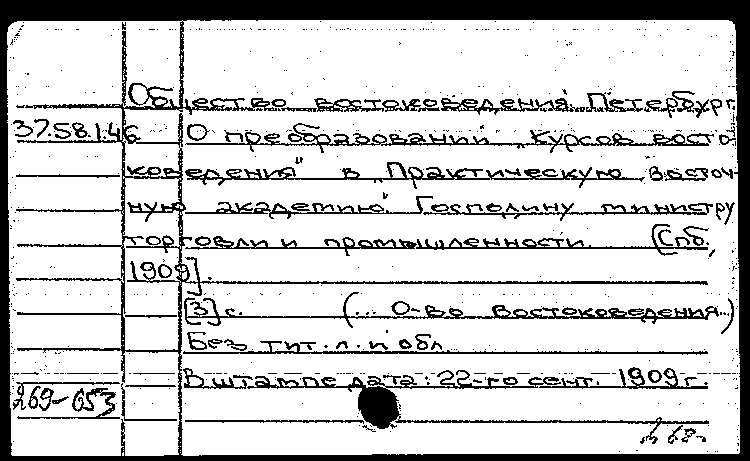 Общество востоковедения. Петербург.
37.58.1.46 О преобразовании „Курсов восто-
коведения" в „Практическую восточ-
ную академию". Господину министру
торговли и промышленности. [Спб.,
1909].
[3] с. (... О-во востоковедения...)
Без тит. л. и обл.
В штампе дата: 22-го сент. 1909 г.
269-653